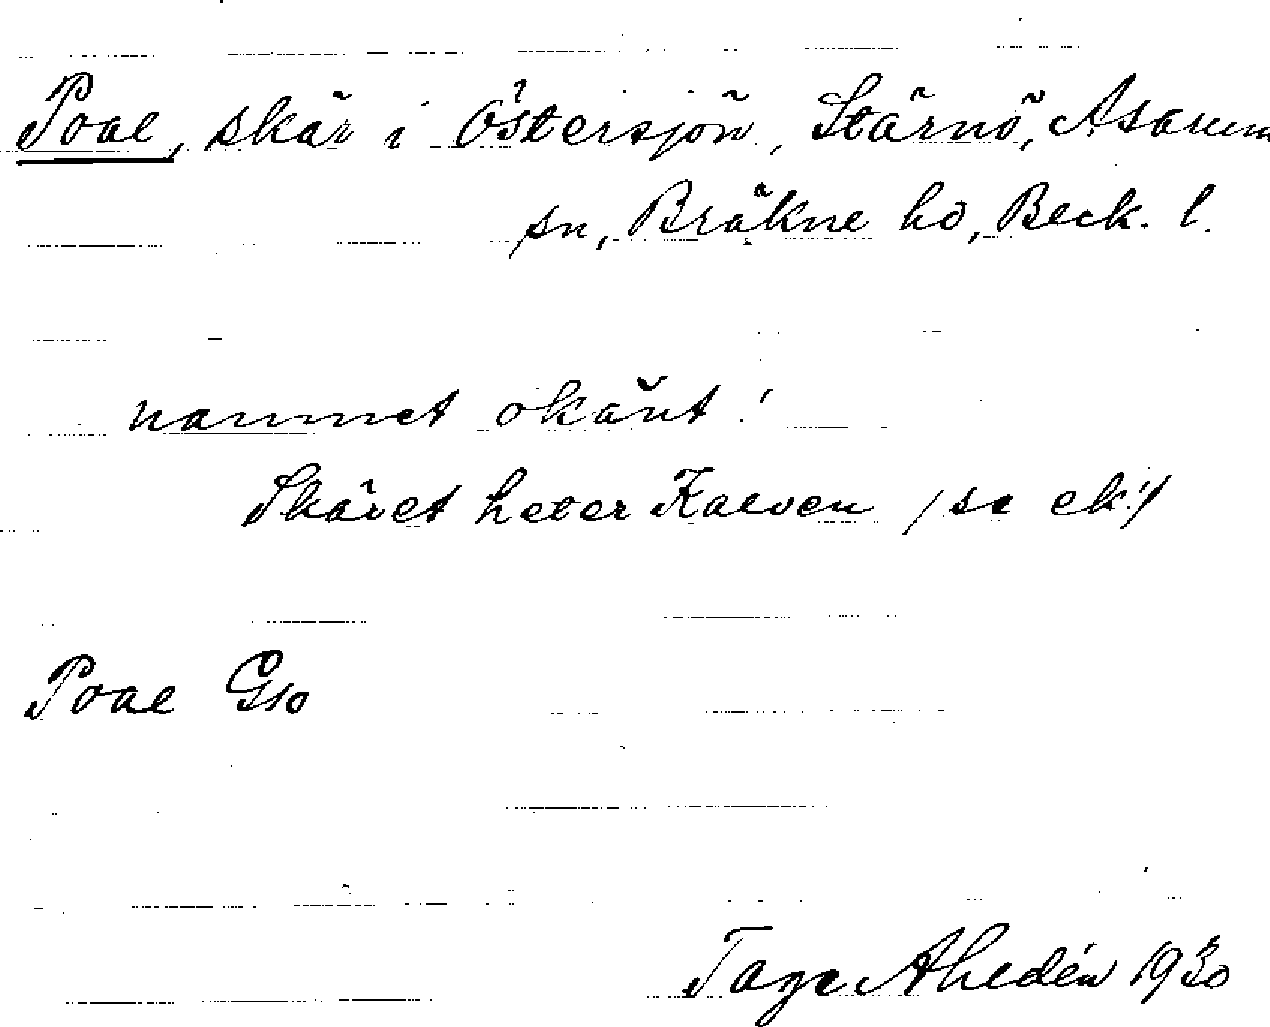 Poae, skär i Östersjön, Stärnö, Asarum
sn, Bräkne hd, Bleck. l.
namnet okänt!
Skäret heter Kaeven /se ek!/
Poae Gso
Tage Ahldén 1930